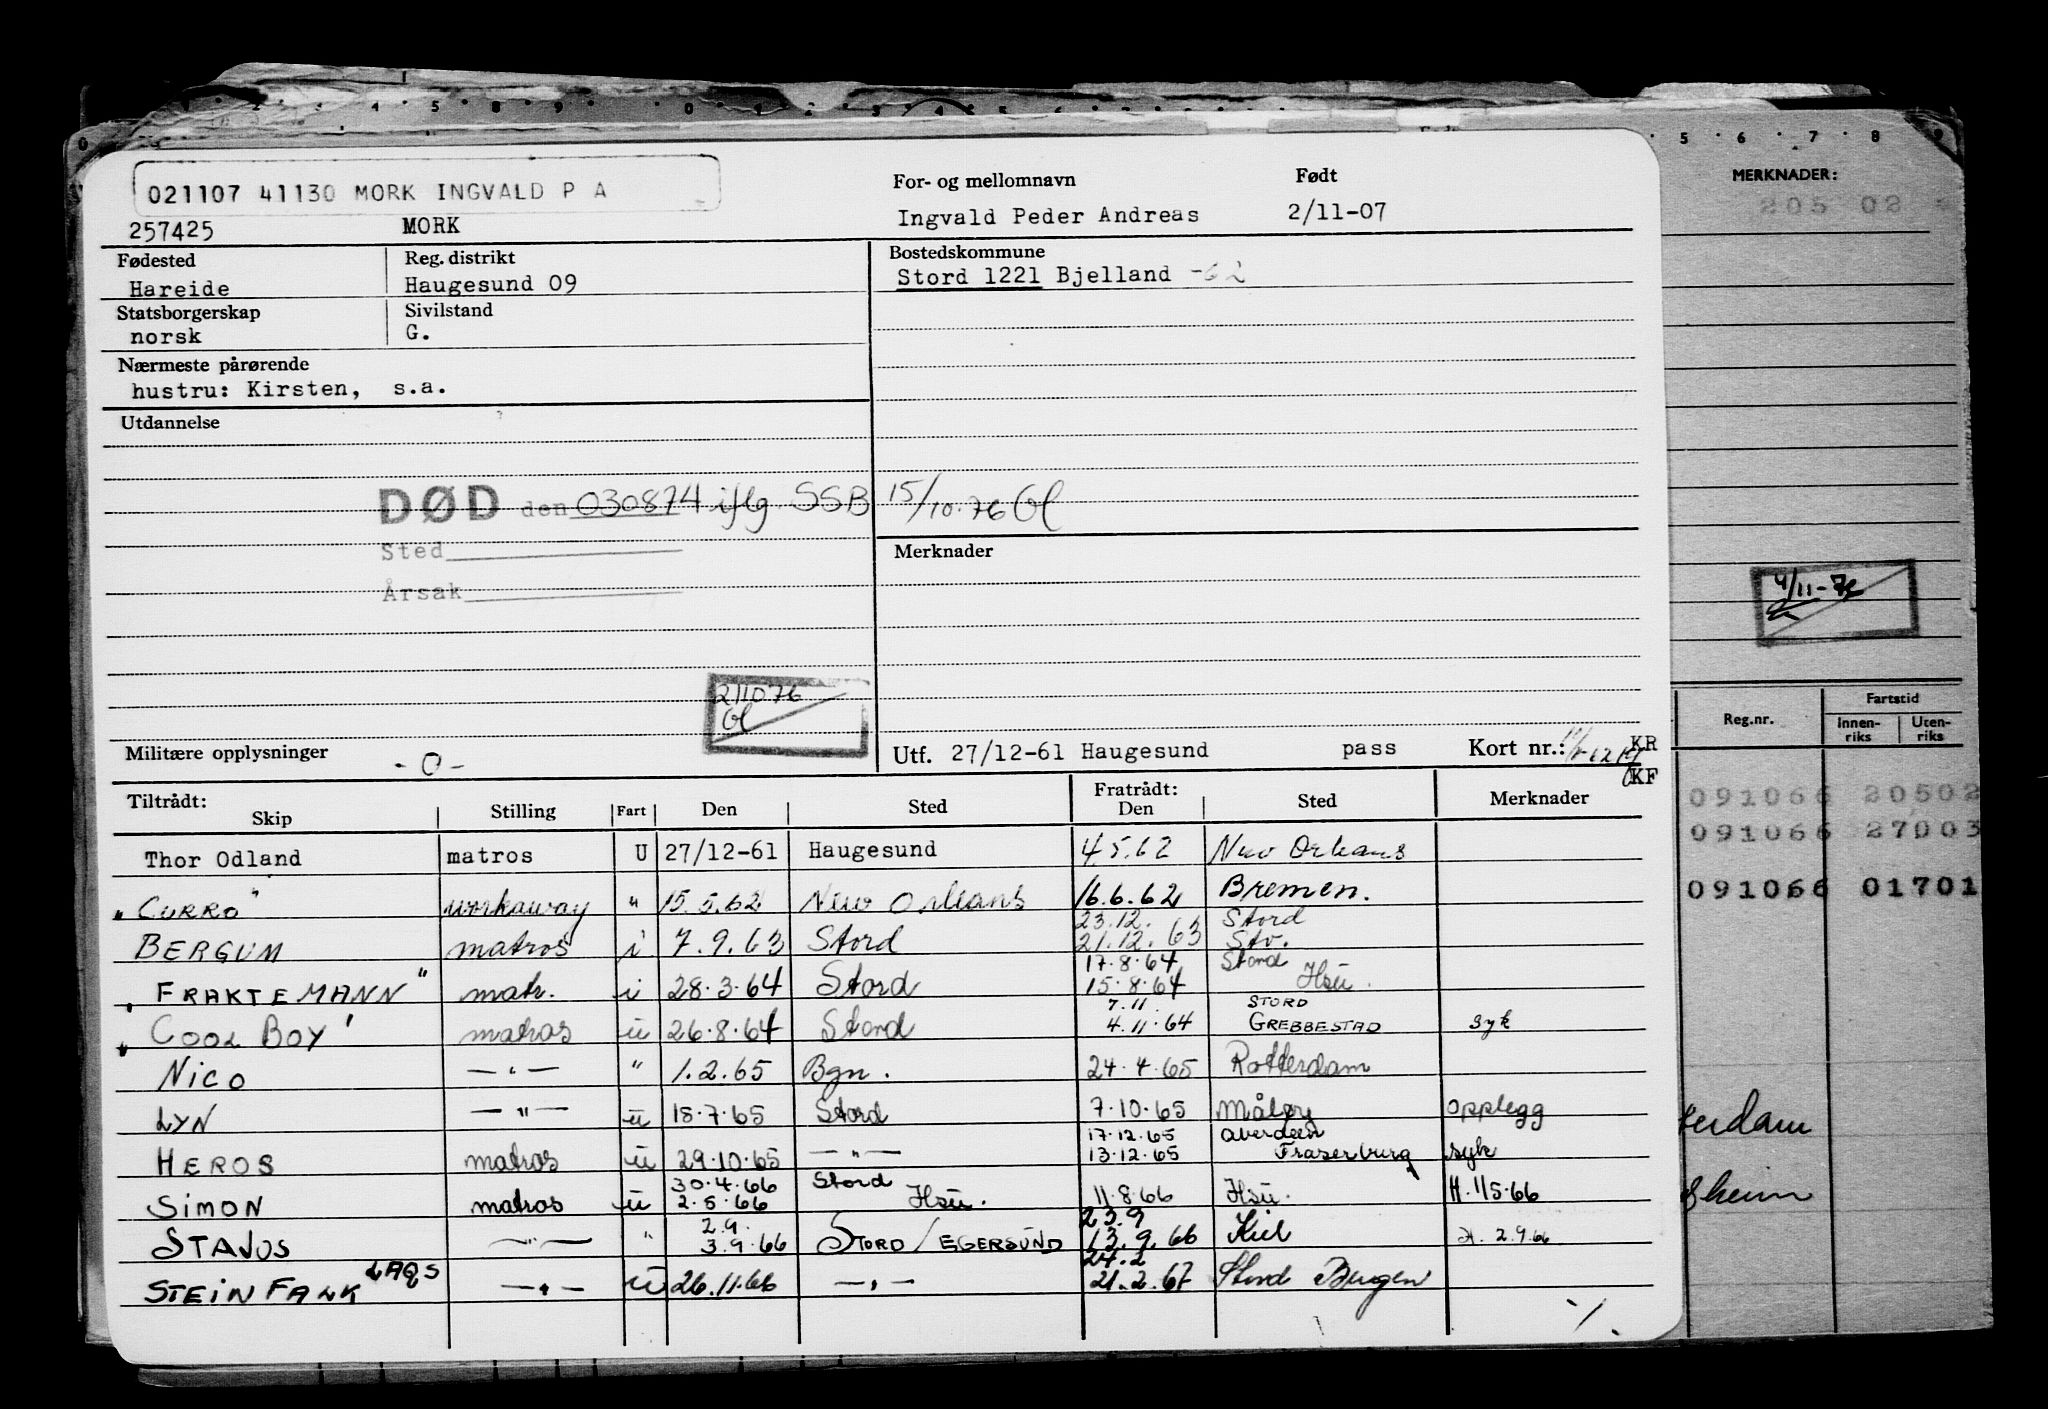 MERKNADER:
205 02
021107 41130 MORK INGVALD P A
257425 MORK
For- og mellomnavn Født
Ingvald Peder Andreas 2/11-07
Fødested Reg. distrikt Bostedskommune
Hareide Haugesund 09 Stord 1221 Bjelland -62
Statsborgerskap Sivilstand
norsk G.
Nærmeste pårørende
hustru: Kirsten, s.a.
Utdannelse
DØD den 030874 iflg. SSB 15/10.76 Gl
Sted
Årsak
Merknader
4/11-76
211076
Gl
Militære opplysninger -0-
Utf. 27/12-61 Haugesund pass Kort nr.: KR
KF
Reg.nr. Fartstid
Innen-riks Uten-riks
Tiltrådt: Fratrådt:
Skip Stilling Fart Den Sted Den Sted Merknader
Thor Odland matros U 27/12-61 Haugesund 4.5.62 New Orleans
"CURRO" workaway " 15.5.62 New Orleans 16.6.62 Bremen.
23.12. Stord
BERGUM matros i 7.9.63 Stord 21.12.63 Stv.
17.8.64 Stord
"FRAKTEMANN" matr. i 28.3.64 Stord 15.8.64 Hsu.
7.11 STORD
"COOL BOY" matros ü 26.8.64 Stord 4.11.64 GREBBESTAD syk
NICO —"— " 1.2.65 Bgn. 24.4.65 Rotterdam
LYN —"— ü 18.7.65 Stord 7.10.65 Måløy opplegg
17.12.65 Aberdeen
HEROS matros ü 29.10.65 —"— 13.12.65 Fraserburg syk
30.4.66 Stord
SIMON matros ü 2.5.66 Hsü. 11.8.66 Hsü. H. 11.5.66
2.9. 23.9
STAVOS —"— " 3.9.66 STORD / EGERSUND 13.9.66 Kiel H. 2.9.66
LAQS 24.2
STEIN FALK —"— ü 26.11.66 —"— 21.2.67 Stord Bergen
./.
091066 20502
091066 27003
091066 01701
erdam
heim